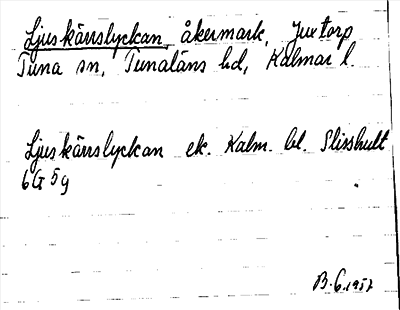 Ljuskärrslyckan, åkermark, Juxtorp
Tuna sn, Tunaläns hd, Kalmar l.
Ljuskärrslyckan ek. Kalm. bl. Slisshult
6G 5g
B. G. 1957